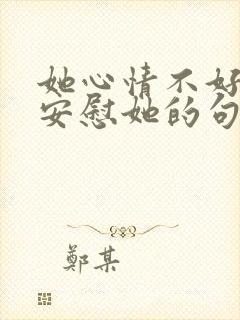 她心情不好
安慰她的句
鄭某